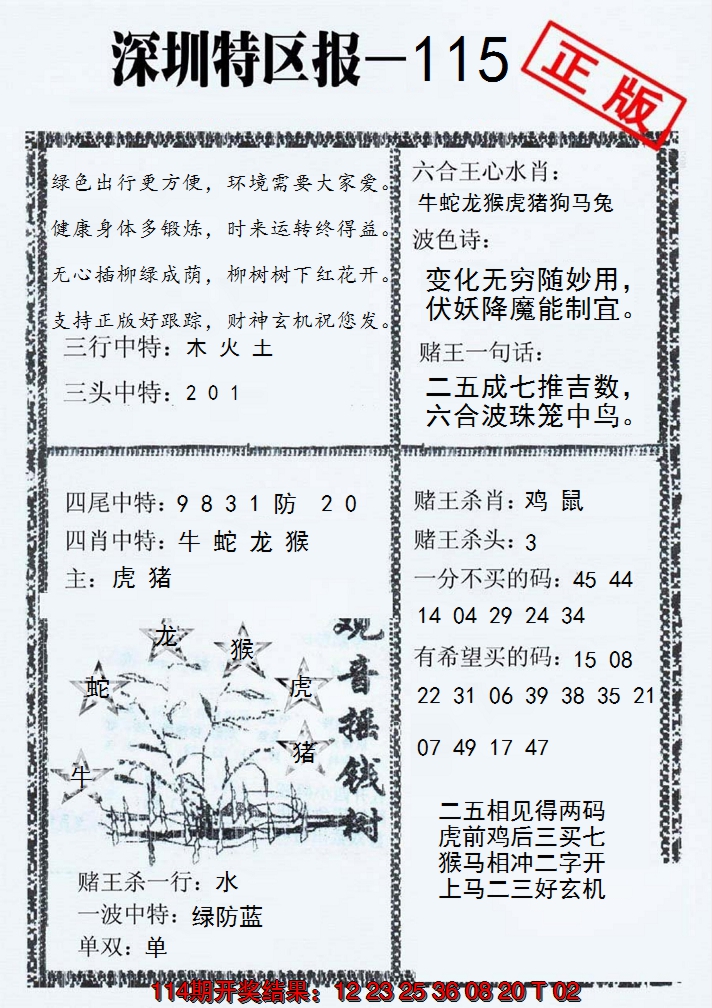 深圳特区报-115
正版
绿色出行更方便，环境需要大家爱。
健康身体多锻炼，时来运转终得益。
无心插柳绿成荫，柳树树下红花开。
支持正版好跟踪，财神玄机祝您发。
三行中特：木 火 土
三头中特：2 0 1
六合王心水肖：
牛蛇龙猴虎猪狗马兔
波色诗：
变化无穷随妙用，
伏妖降魔能制宜。
赌王一句话：
二五成七推吉数，
六合波珠笼中鸟。
四尾中特：9 8 3 1 防 2 0
四肖中特：牛 蛇 龙 猴
主：虎 猪
龙
猴
蛇
虎
猪
牛
观音摇钱树
赌王杀一行：水
一波中特：绿防蓝
单双：单
赌王杀肖：鸡 鼠
赌王杀头：3
一分不买的码：45 44
14 04 29 24 34
有希望买的码：15 08
22 31 06 39 38 35 21
07 49 17 47
二五相见得两码
虎前鸡后三买七
猴马相冲二字开
上马二三好玄机
114期开奖结果：12 23 25 36 08 20 T 02